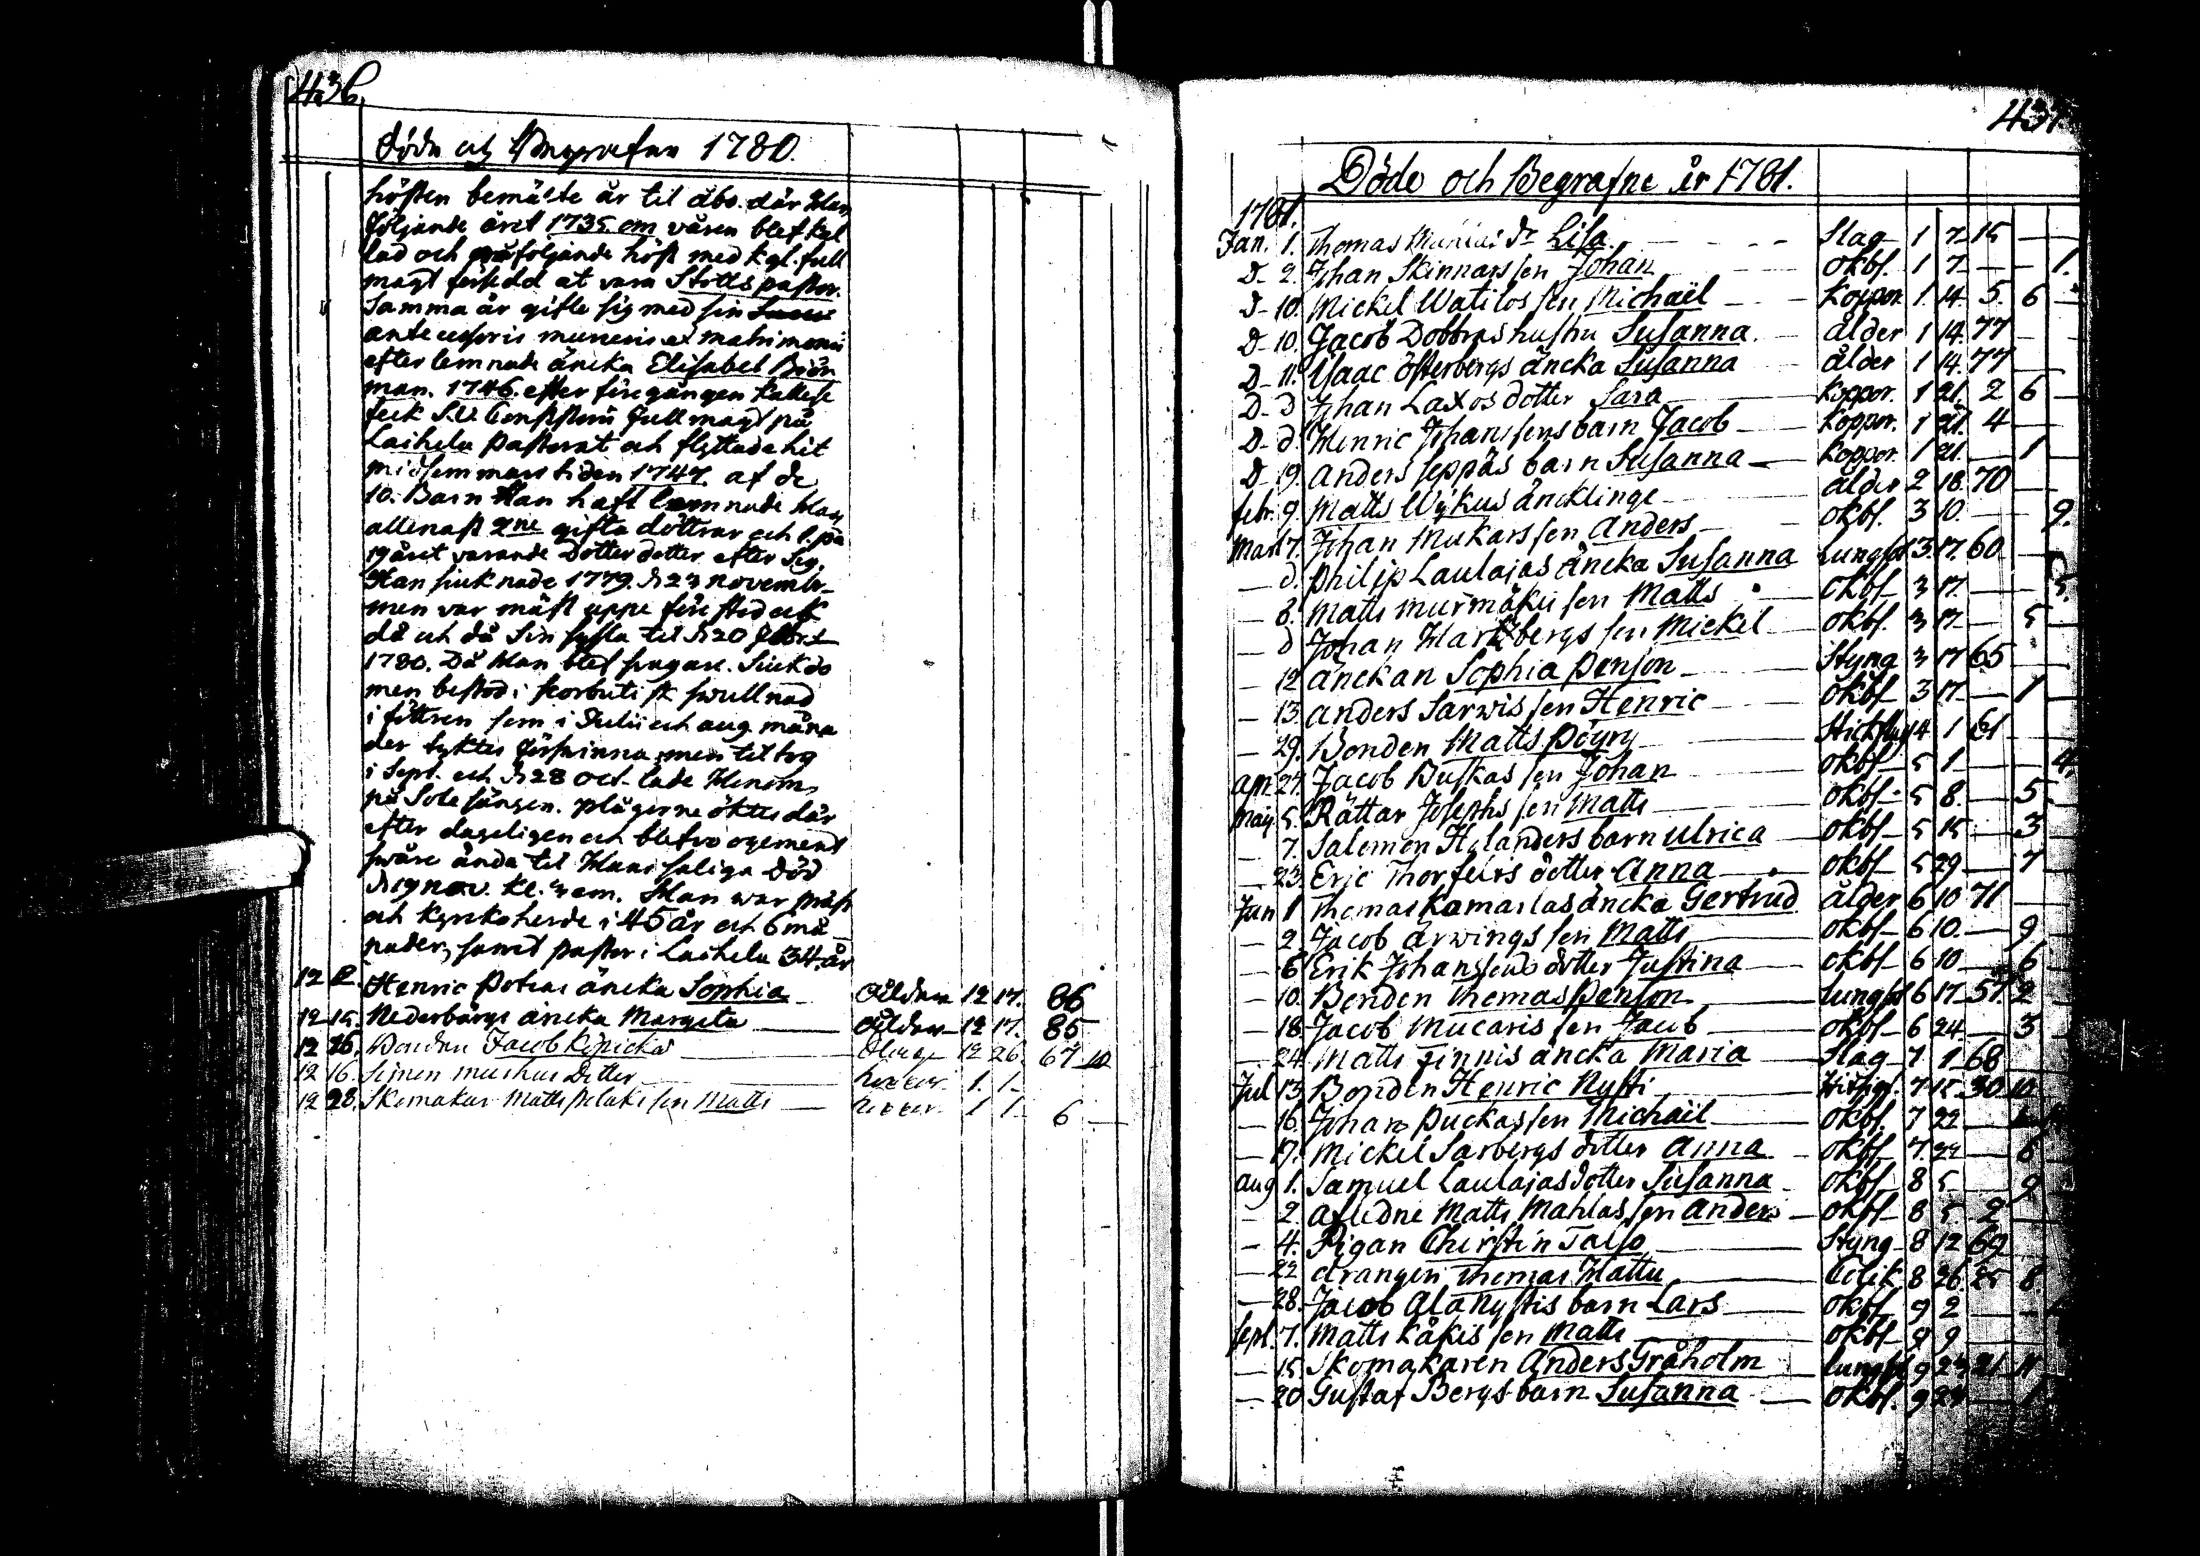 436.
Döde och Begrafne 1780.
hösten bemälte år til Åbo. där Han
följande året 1735 om våren blef kal
lad och påföljande höst med kgl. full
magt försedd at vara Slottspastor.
Samma år gifte sig med sin
antecessoris muneris et matrimonii
efterlemnade äncka Elisabet Björ
man. 1746. efter föregången kallelse
feck S.V. Consistorii fullmagt på
Laihela Pastorat och flyttade hit
midsommars tiden 1747. af de
10. Barn Han haft lemnade Han
allenast 2ne gifta döttrar och 1. på
19 året varande Dotter dotter efter Sig.
Han siuknade 1779. d 23 November
men var mäst uppe förestod ock
då och då Sin sysla til d 20
1780. Då Han blef svagare. Siukdo
men bestod i scorbutisk svullnad
i föttren som i Julii och aug. måna
der tyktes försvinna, men tiltog
i Sept. och d 28 Oct. lade Honom
på Sotesängen. plågerne öktes där
efter dageligen och blefvo ogement
svåre ända til Hans saliga Död
d 19 nov. kl. 3 em. Han war präst
och kyrkoherde i 45 år och 6 må
nader, samt pastor i Laihela 34. år
12 12. Henric Potins äncka Sophia Ålderd. 12 17. 86
12 15. Nederbärgs äncka Margeta Ålderd. 12 17. 85
12 26. Bonden Jacob Kinickas Slag 12 26. 67 10
12 16. Simon Muskus Dotter koppor. 1. 1.
12 28. Skomakar Matts Pelaks son Matts koppor. 1 1. 6
437.
Döde och Begrafne år 1781.
1781.
Jan. 1. Thomas dr Lisa Slag 1 7 15
D 2. Johan Skinnars son Johan okbf. 1 7 1.
D 10. Mickel Watilos son Michaël koppor. 1. 14. 5. 6
D 10. Jacob Dobbras hustru Susanna ålder 1 14. 77
D 11. Isaac Österbergs äncka Susanna ålder 1 14. 77
D d Johan Laxos dotter Sara koppor. 1 21. 2 6
D d Henric Johanssons barn Jacob koppor. 1 21. 4
D 19. Anders Seppäs barn Susanna koppor. 1 21. 1
febr. 9. Matts Wÿkus äncklinge ålder 2 18. 70
Mart 7. Johan Mukars son Anders okbf. 3 10. 9.
d. Philip Laulajas äncka Susanna lungsot 3. 17. 60
8. Matts Murmäkis son Matts okbf 3 17. 5.
d Johan Hartzbergs son Mickel okbf. 3 17 5
12 änckan Sophia Penson Styng 3 17 65
13. Anders Sarwis son Henric okbf 3 17. 1
29. Bonden Matts Pöyry 4 1 61
apr. 27. Jacob Buskas son Johan okbf 5 1 4.
Maij 5. Rättar Josephs son Matts okbf 5 8. 5
7. Salomon Holanders barn Ulrica okbf 5 15 3
23. Eric Thorfeirs dotter Anna okbf 5 29 7
Jun 1 Thomas Kamarlas äncka Gertrud ålder 6 10 71
2. Jacob Arwings son Matts okbf 6 10. 9
6 Erik Johanssons dotter Justina okbf 6 10 6
10. Bonden Thomas Penson lungsot 6 17 57. 2
18. Jacob Mucaris son Jacob okbf 6 24 3
24. Matts Finnis äncka Maria Slag 7 1 68
Jul 13. Bonden Henric Rusti 7 15 30 10
16. Johan Puckas son Michaël okbf. 7 22
17. Mickel Sarbergs dotter Anna okbf 7. 22 6
aug 1. Samuel Laulajas dotter Susanna okbf 8 5 9
2. Afledne Matts Mahlas son Anders okbf 8 5. 2
4. Pigan Chirstin Taiso Styng 8 12 69
22 drängen Thomas Hattu Colik 8 26. 25 8.
28. Jacob Alanystis barn Lars okbf 9 2
sept. 7. Matts Kåkis son Matts okbf 9 9
15. Skomakaren Anders Gråholm lungsot 9 23 21 11
20 Gustaf Bergs barn Susanna okbf. 9 24 1